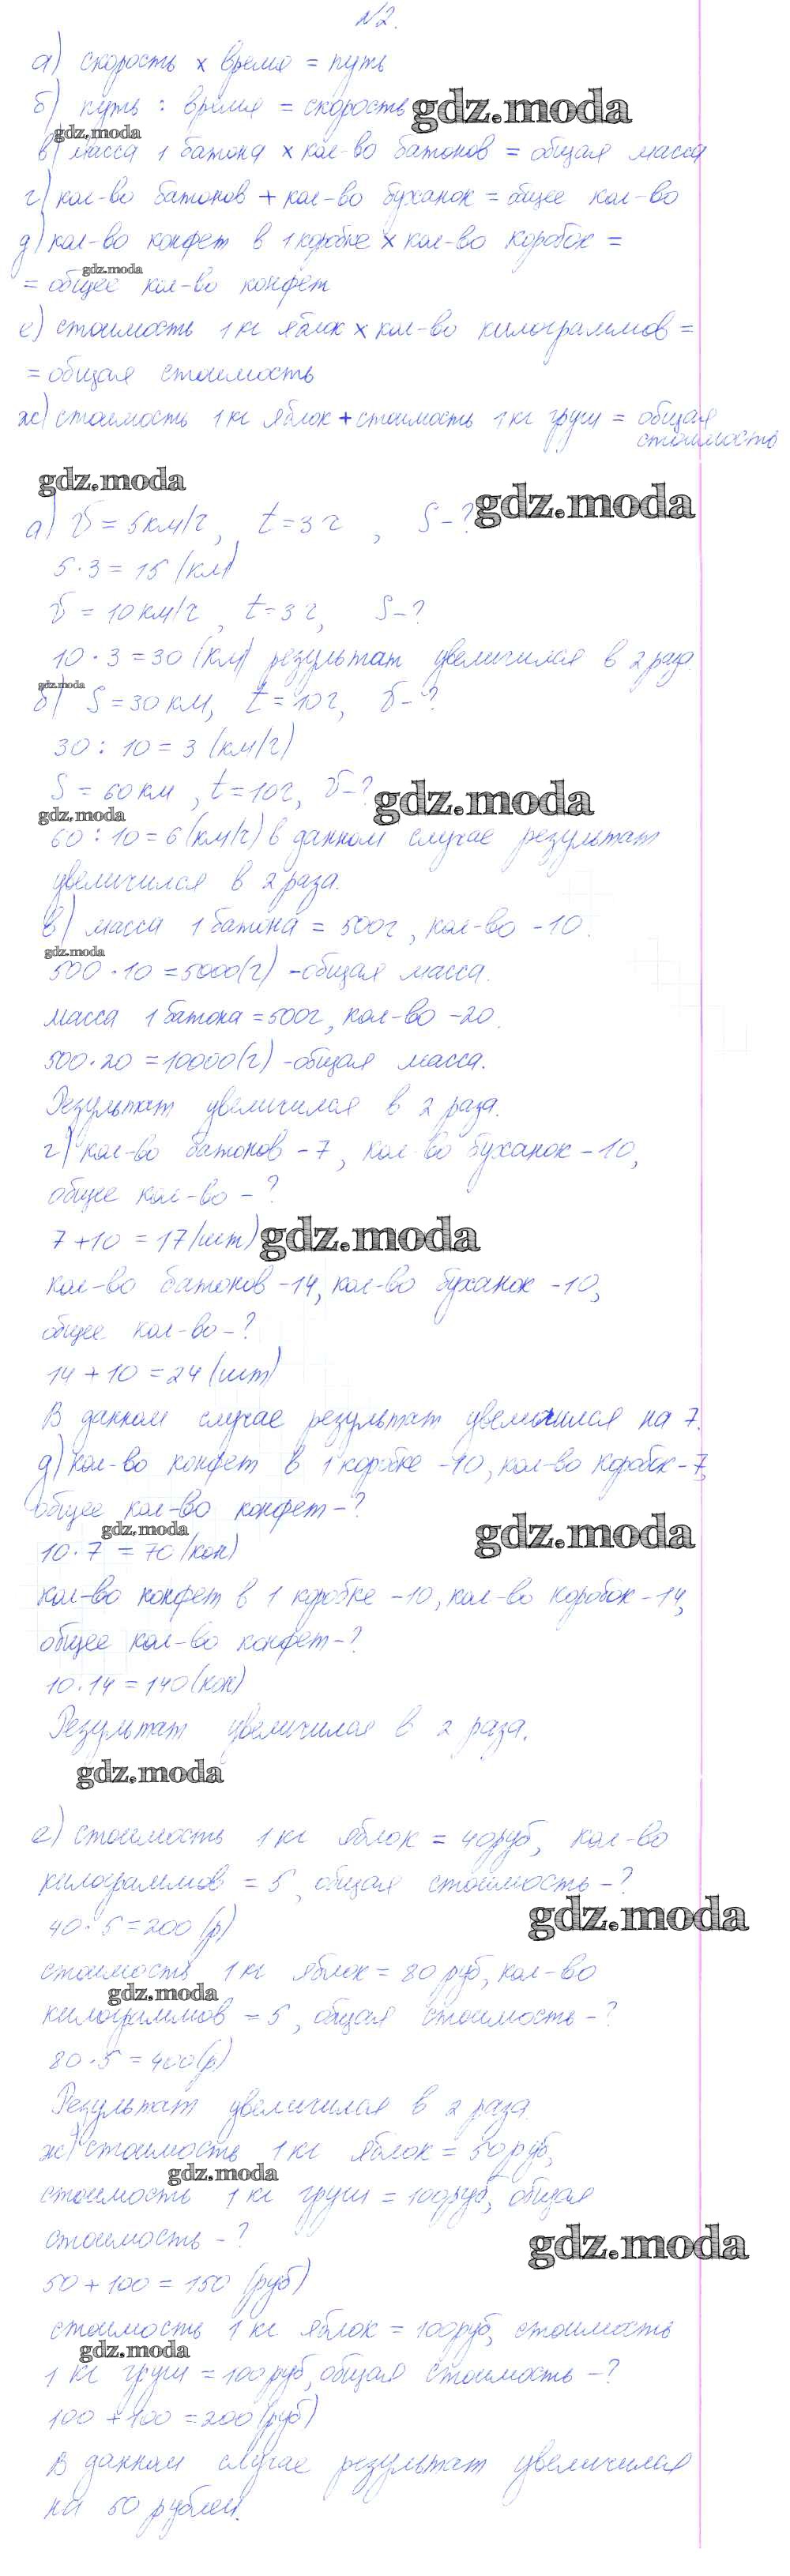 №2.
а) скорость х время = путь
б) путь : время = скорость
gdz.moda
gdz.moda
в) масса 1 батона х кол-во батонов = общая масса
г) кол-во батонов + кол-во буханок = общее кол-во
д) кол-во конфет в 1 коробке х кол-во коробок =
gdz.moda
= общее кол-во конфет
е) стоимость 1 кг яблок х кол-во килограммов =
= общая стоимость
ж) стоимость 1 кг яблок + стоимость 1 кг груш = общая
стоимость
gdz.moda
gdz.moda
а) v = 5 км/ч, t = 3 ч, S - ?
5 · 3 = 15 (км)
v = 10 км/ч, t = 3 ч, S - ?
10 · 3 = 30 (км) результат увеличился в 2 раза.
gdz.moda
б) S = 30 км, t = 10 ч, v - ?
30 : 10 = 3 (км/ч)
S = 60 км, t = 10 ч, v - ?
gdz.moda
gdz.moda
60 : 10 = 6 (км/ч) в данном случае результат
увеличился в 2 раза.
в) масса 1 батона = 500г, кол-во - 10.
gdz.moda
500 · 10 = 5000(г) - общая масса.
масса 1 батона = 500г, кол-во - 20.
500 · 20 = 10000(г) - общая масса.
Результат увеличился в 2 раза.
г) кол-во батонов - 7, кол-во буханок - 10,
общее кол-во - ?
7 + 10 = 17 (шт)
gdz.moda
кол-во батонов - 14, кол-во буханок - 10,
общее кол-во - ?
14 + 10 = 24 (шт)
В данном случае результат увеличился на 7.
д) кол-во конфет в 1 коробке - 10, кол-во коробок - 7,
общее кол-во конфет - ?
gdz.moda
gdz.moda
10 · 7 = 70 (кон)
кол-во конфет в 1 коробке - 10, кол-во коробок - 14,
общее кол-во конфет - ?
10 · 14 = 140 (кон)
Результат увеличился в 2 раза.
gdz.moda
е) стоимость 1 кг яблок = 40 руб, кол-во
килограммов = 5, общая стоимость - ?
gdz.moda
40 · 5 = 200 (р)
стоимость 1 кг яблок = 80 руб, кол-во
gdz.moda
килограммов = 5, общая стоимость - ?
80 · 5 = 400 (р)
Результат увеличился в 2 раза.
ж) стоимость 1 кг яблок = 50 руб,
gdz.moda
стоимость 1 кг груш = 100руб, общая
стоимость - ?
gdz.moda
50 + 100 = 150 (руб)
стоимость 1 кг яблок = 100руб, стоимость
gdz.moda
1 кг груш = 100 руб, общая стоимость - ?
100 + 100 = 200 (руб)
В данном случае результат увеличился
на 50 рублей.